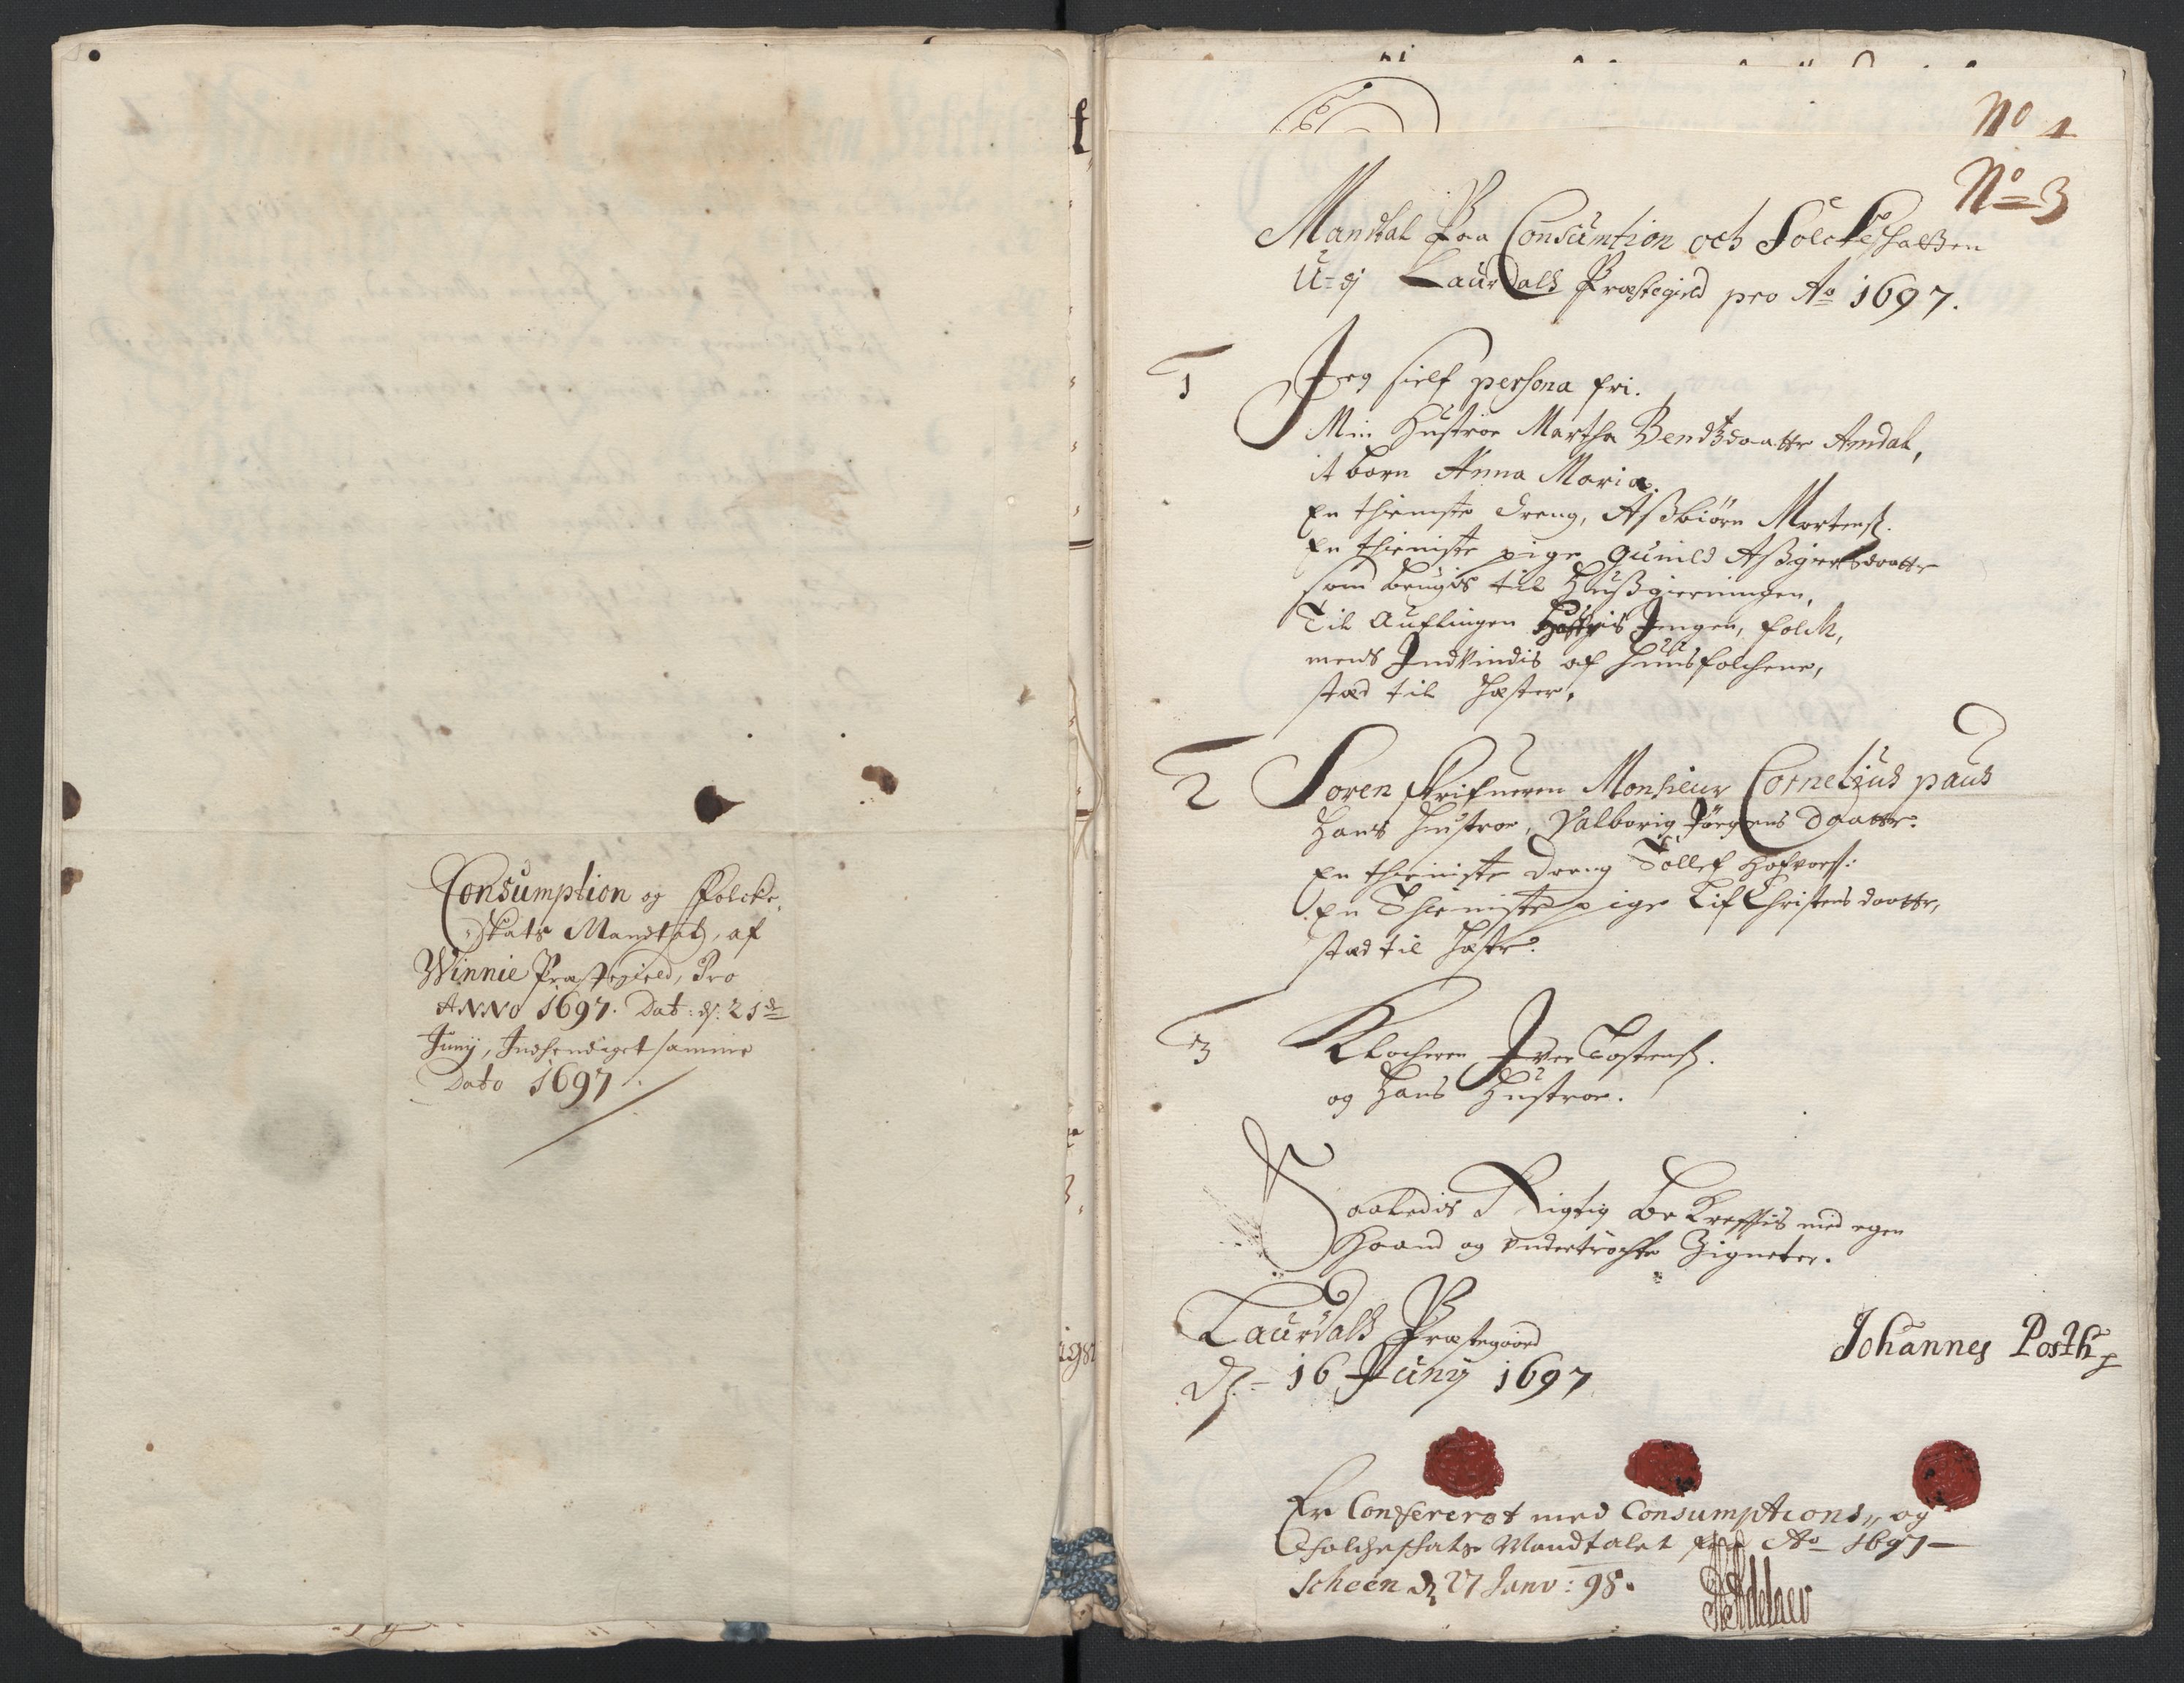 Consumption og Folcke
Skats Mandtal, af
Winnie Præstegield, Pro
ANNO 1697. Dat: d. 21de
Junij, Indhendiget samme
Dato 1697.
No 1
No 3
Mandtal Paa Consumtion och Folckeskatten
U-di Laurdals Præstegield pro Ao 1697.
1
Jeg sielf persona fri.
Min Hustroe Martha Bendtzdaatter Arndal,
it barn Anna Maria.
En thieniste dreng, Assbiørn Mortens.
En thieniste pige Gunild Assgiersdaatter
som brugis til Hussgierningen,
Til Auflingen Hafvis Jngen, folck,
mens Indvindis af huusfolchene,
stæd til Hæster,
2
Soren skrifveren Monsieur Cornelius paus
Hans Hustroe, Valborig Jørgens Daatter.
En thieniste dreng Tollef Hafvors:
En Thieniste pige Lif Christens daatter,
stæd til Hæste.
3
Klocheren Iver Tostens.
og Hans Hustroe.
Saaledis Rigtig Bekrefftis med egen
Haand og undertrøchte Zigneter.
Laurdals Præstegaard
d. 16 Juny 1697
Johannes Posth
Er Confererat med Consumptions, og
Folcheskats Mandtalet pro Ao 1697
Scheen d 27 Janv: 98.